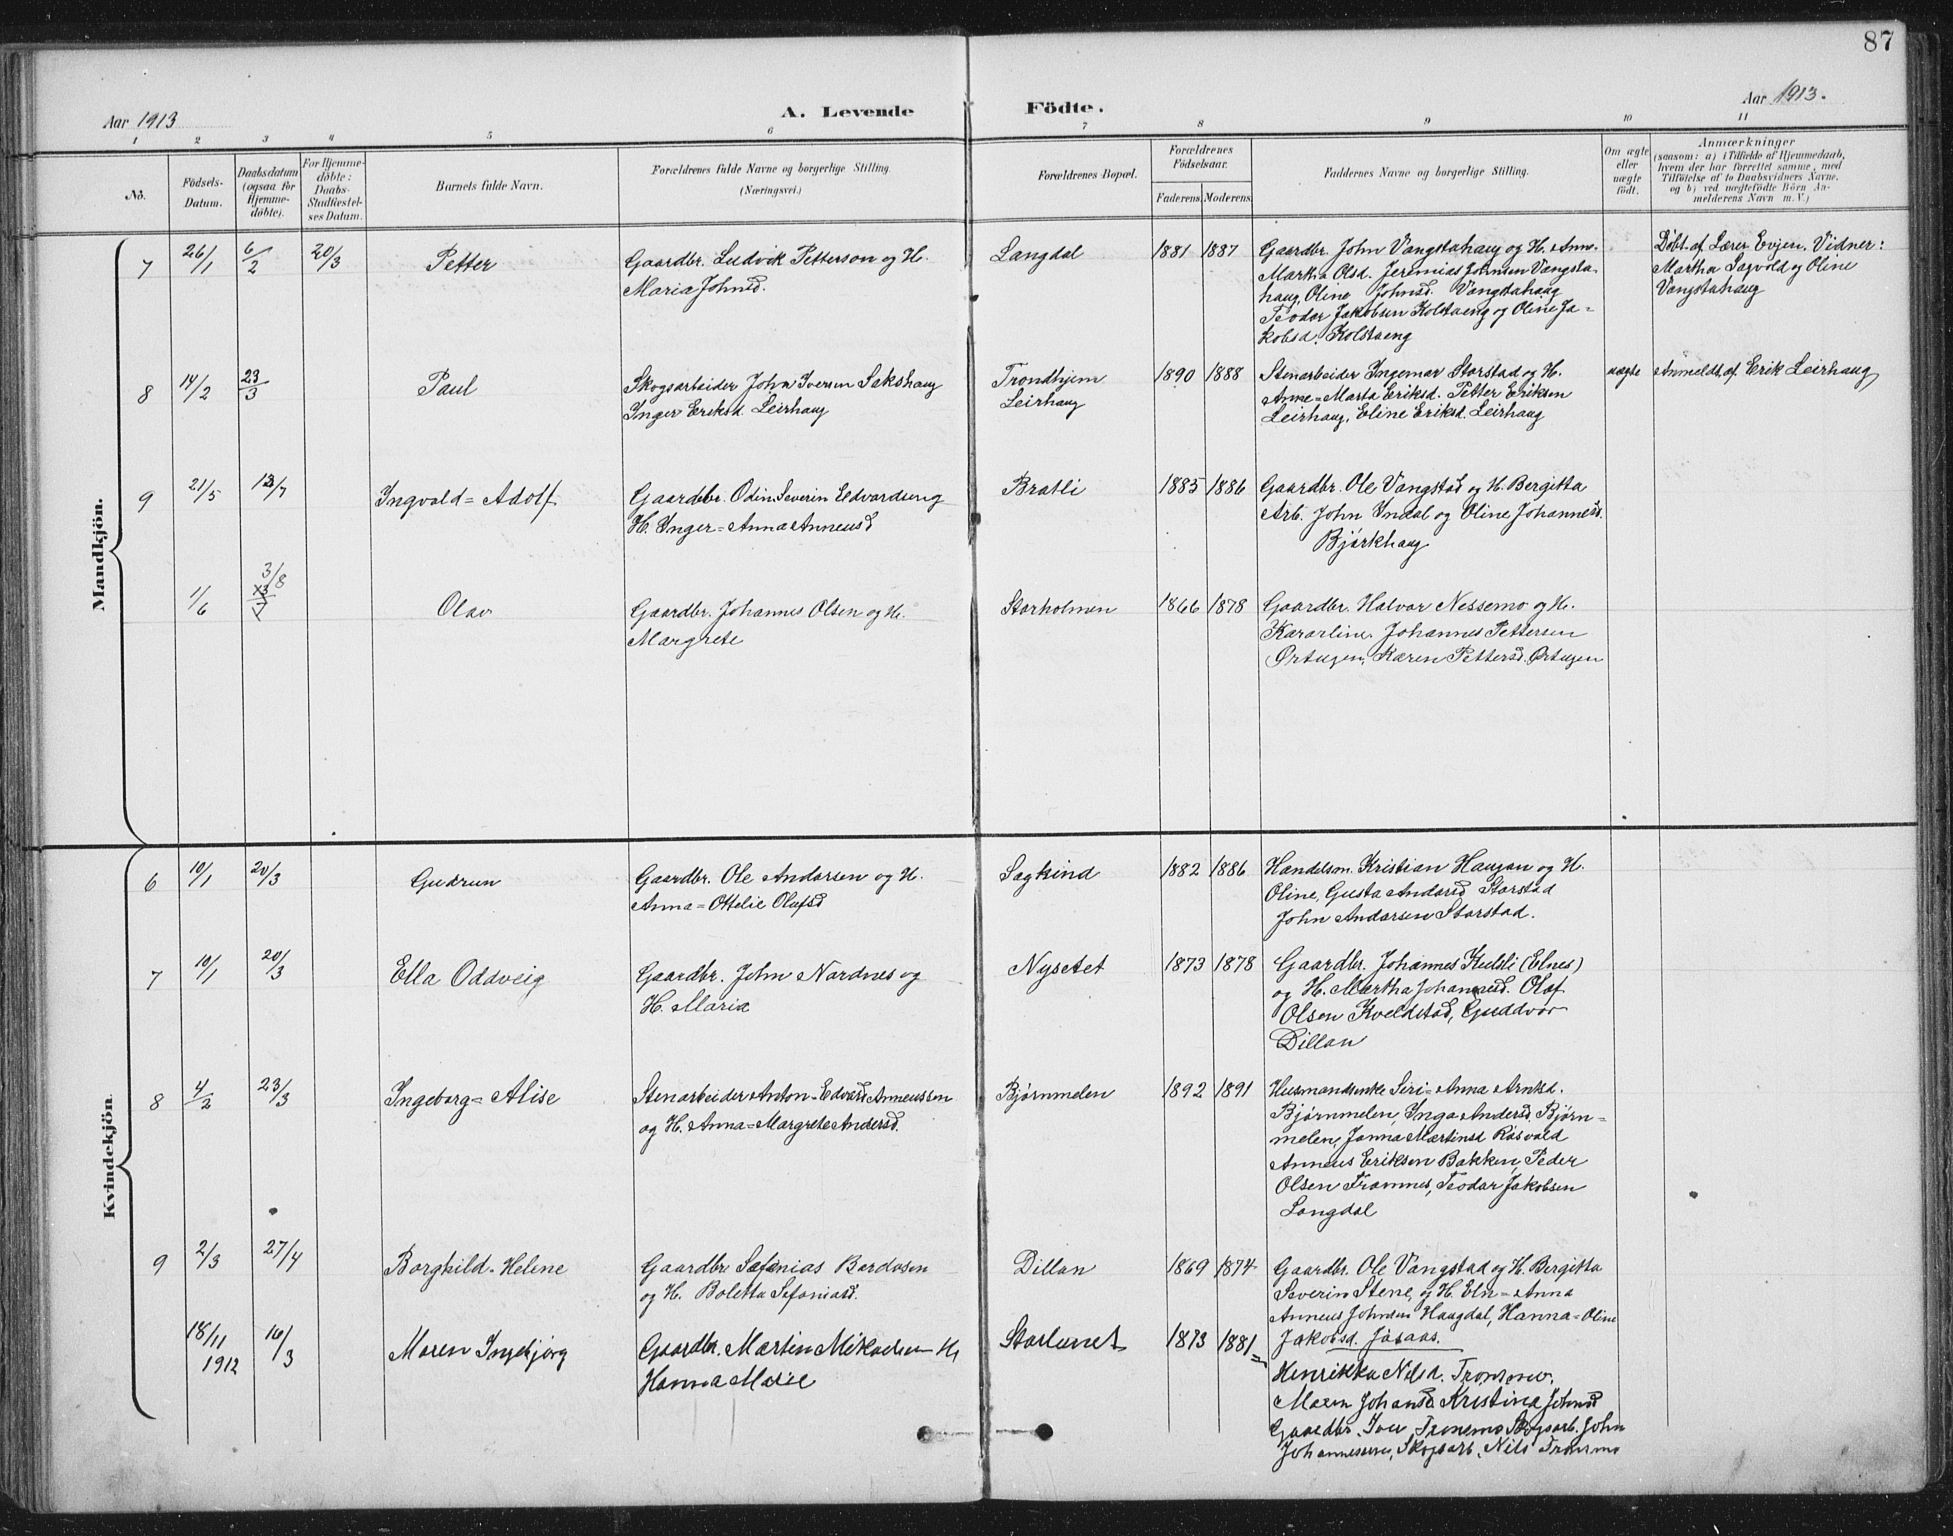 87
Aar 1913
A. Levende Födte.
Aar 1913.
1 2 3 4 5 6 7 8 9 10 11
No.
Födsels-
Datum.
Daabsdatum
(ogsaa for
Hjemme-
döbte).
For Hjemme-
döbte:
Daabs-
Stadfæstel-
ses Datum.
Barnets fulde Navn.
Forældrenes fulde Navne og borgerlige Stilling.
(Næringsvei.)
Forældrenes Bopæl.
Forældrenes
Födselsaar.
Faderens Moderens
Faddernes Navne og borgerlige Stilling.
Om ægte
eller
uægte
födt.
Anmærkninger
(saasom: a) i Tilfælde af Hjemmedaab,
hvem der har forrettet samme, med
Tilföielse af to Daabsvidners Navne.
og b) ved uægtefödte Börn An-
melderens Navn m. V.)
Mandkjön.
7 26/1 6/2 20/3 Petter
Gaardbr. Ludvik Petterson og H.
Maria Johnsd.
Langdal 1881 1887
Gaardbr. John Vangstahaug og H. Ann-
Martha Olsd. Jeremias Johnsen Vangsta-
haug, Oline Johnsd. Vangstahaug
Teodor Jakobsen Kolstaeng og Oline Ja-
kobsd. Kolstaeng
Døbt af Lærer Evjen. Vidner:
Martha Sagvold og Oline
Vangstahaug
8 14/2 23/3 Paul
Skogsarbeider John Iversen Sakshaug
Inger Eriksd Leirhaug
Trondhjem
Leirhaug
1890 1888
Stenarbeider Ingemar Storstad og H.
Anne=Marta Eriksd. Petter Eriksen
Leirhaug, Eline Eriksd. Leirhaug
uægte Anmeldt af Erik Leirhaug
9 21/5 13/7 Ingvald=Adolf
Gaardbr. Odin Severin Edvardsen og
H. Inger=Anna Anneusd
Bratli 1885 1886
Gaardbr. Ole Vangstad og H. Bergitta
Arb. John Indal og Oline Johannesd.
Bjørkhaug
1/6 3/8 Olav
Gaardbr. Johannes Olsen og H.
Margrete
Storholmen 1866 1878
Gaardbr. Halvor Nessemo og H.
Karoline. Johannes Pettersen
Ørtugen, Karen Pettersd. Ørtugen
Kvindekjön.
6 10/1 20/3 Gudrun
Gaardbr. Ole Andersen og H.
Anna=Ottelie Olafsd
Sagkind 1882 1886
Handelsm. Kristian Haugan og H.
Oline, Gusta Andersd Storstad
John Andersen Storstad.
7 10/1 20/3 Ella Oddveig
Gaardbr. John Nordnes og
H. Maria
Nysetet 1873 1878
Gaardbr. Johannes Kulsli (Elnes)
og H. Martha Johannesd. Olaf
Olsen Kveldstad, Guddvor
Dillan
8 4/2 23/3 Ingeborg=Alise
Stenarbeider Anton=Edvard Anneussen
og H. Anna=Margrete Andersd.
Bjørnmelen 1892 1891
Husmandsenke Siri=Anna Arntsd.
Bjørnmelen, Inga Andersd. Bjørn=
melen, Janna Martinsd Røsvald
Anneus Eriksen Bakken, Peder
Olsen Tromnes, Teodor Jakobsen
Langdal
9 2/3 27/4 Borghild=Helene
Gaardbr Sefanias Bardosen
og H. Boletta Sefaniasd.
Dillan 1869 1874
Gaardbr. Ole Vangstad og H. Bergitta
Severin Stene, og H. Eln=Anna
Anneus Johnsen Haugdal, Hanna=Oline
Jakobsd. Jøsaas.
18/11
1912
16/3 Maren Ingebjørg
Gaardbr. Martin Mikaelsen H
Hanna Marie
Storlunet 1873 1881
Henrikka Nilsd. Tronsmo.
Maren Johansd Kristina Johnsd
Gaardbr. Iver Tronsmo Skogsarb. John
Johannessen, Skogsarb. Nils Tronsmo